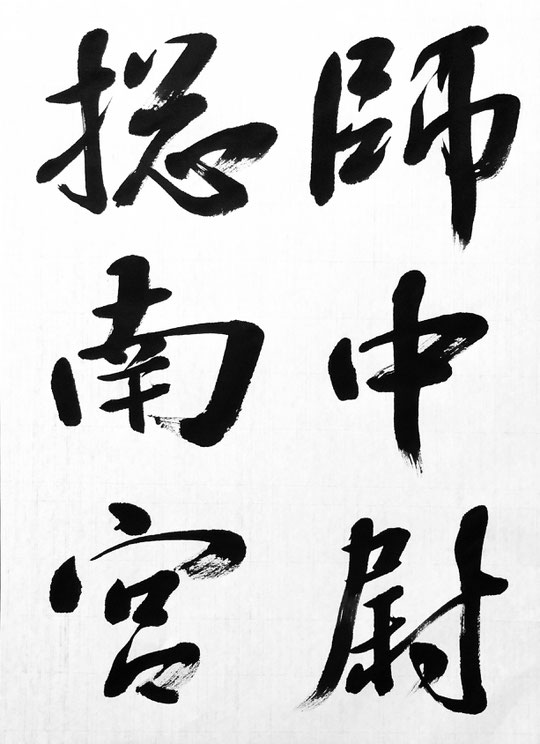 師中尉
揔南宮